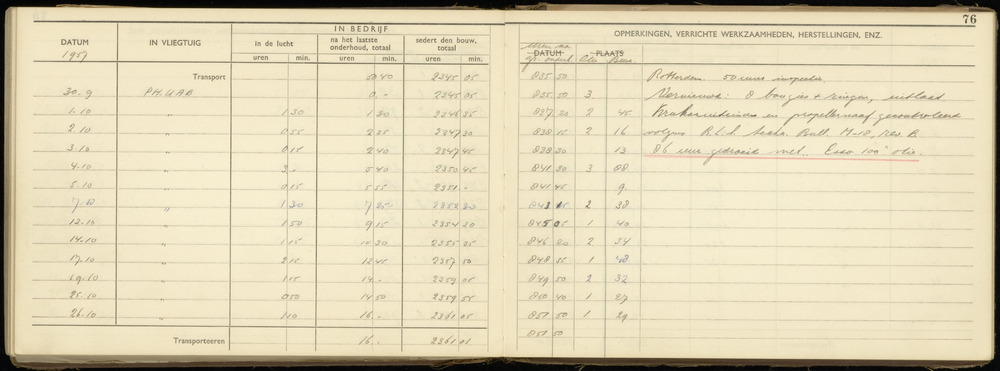 76
IN BEDRIJF
OPMERKINGEN, VERRICHTE WERKZAAMHEDEN, HERSTELLINGEN, ENZ.
DATUM IN VLIEGTUIG in de lucht na het laatste onderhoud, totaal sedert den bouw, totaal DATUM PLAATS
1957 uren min. uren min. uren min. Olie Benz.
Transport 50 40 2345 05 835 50 Rotterdam. 50 uurs inspectie.
30.9 PH.UAB 0 - 2345 05 835 50 3 Vernieuwd: 8 bougies + ringen, uitlaat
1.10 " 1 30 1 30 2346 35 837 20 2 45 en propellernaaf gecontroleerd
2.10 " 0 55 2 25 2347 30 838 15 2 16 volgens Bull. M-18, Rev. B.
3.10 " 0 15 2 40 2347 45 838 30 13 86 uur gedraaid met Esso 100 olie.
4.10 " 3 - 5 40 2350 45 841 30 3 88
5.10 " 0 15 5 55 2351 - 841 45 9
7.10 " 1 30 7 25 2352 30 843 15 2 38
12.10 " 1 50 9 15 2354 20 845 05 1 40
14.10 " 1 15 10 30 2355 35 846 20 2 34
17.10 " 2 15 12 45 2357 50 848 35 1 48
19.10 " 1 15 14 - 2359 05 849 50 2 32
25.10 " 0 50 14 50 2359 55 850 40 1 27
26.10 " 1 10 16 - 2361 05 851 50 1 29
851 50
Transporteeren 16 - 2361 01